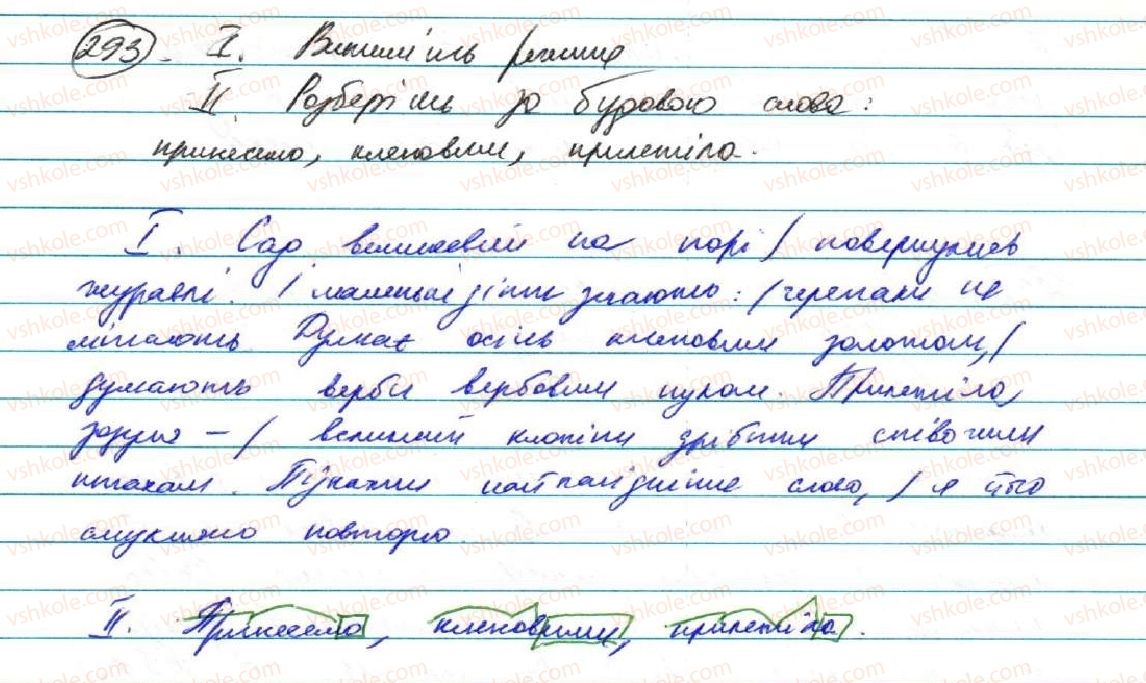 293. I. Випишіть речення
II. Розберіть за будовою слова:
принесло, кленовими, прилетіла.
I. Сад вишневий на порі / повернулись
журавлі. / маленькі діти знають: / черепахи не
літають. Думає осінь кленовим золотом, /
думають верби вербовим пухом. Прилетіла,
зозуля – / великий клопіт дрібним співочим
птахам. Підкажи найпотрібніше слово, / я його
слухняно повторю.
II. Принесло, кленовими, прилетіла.